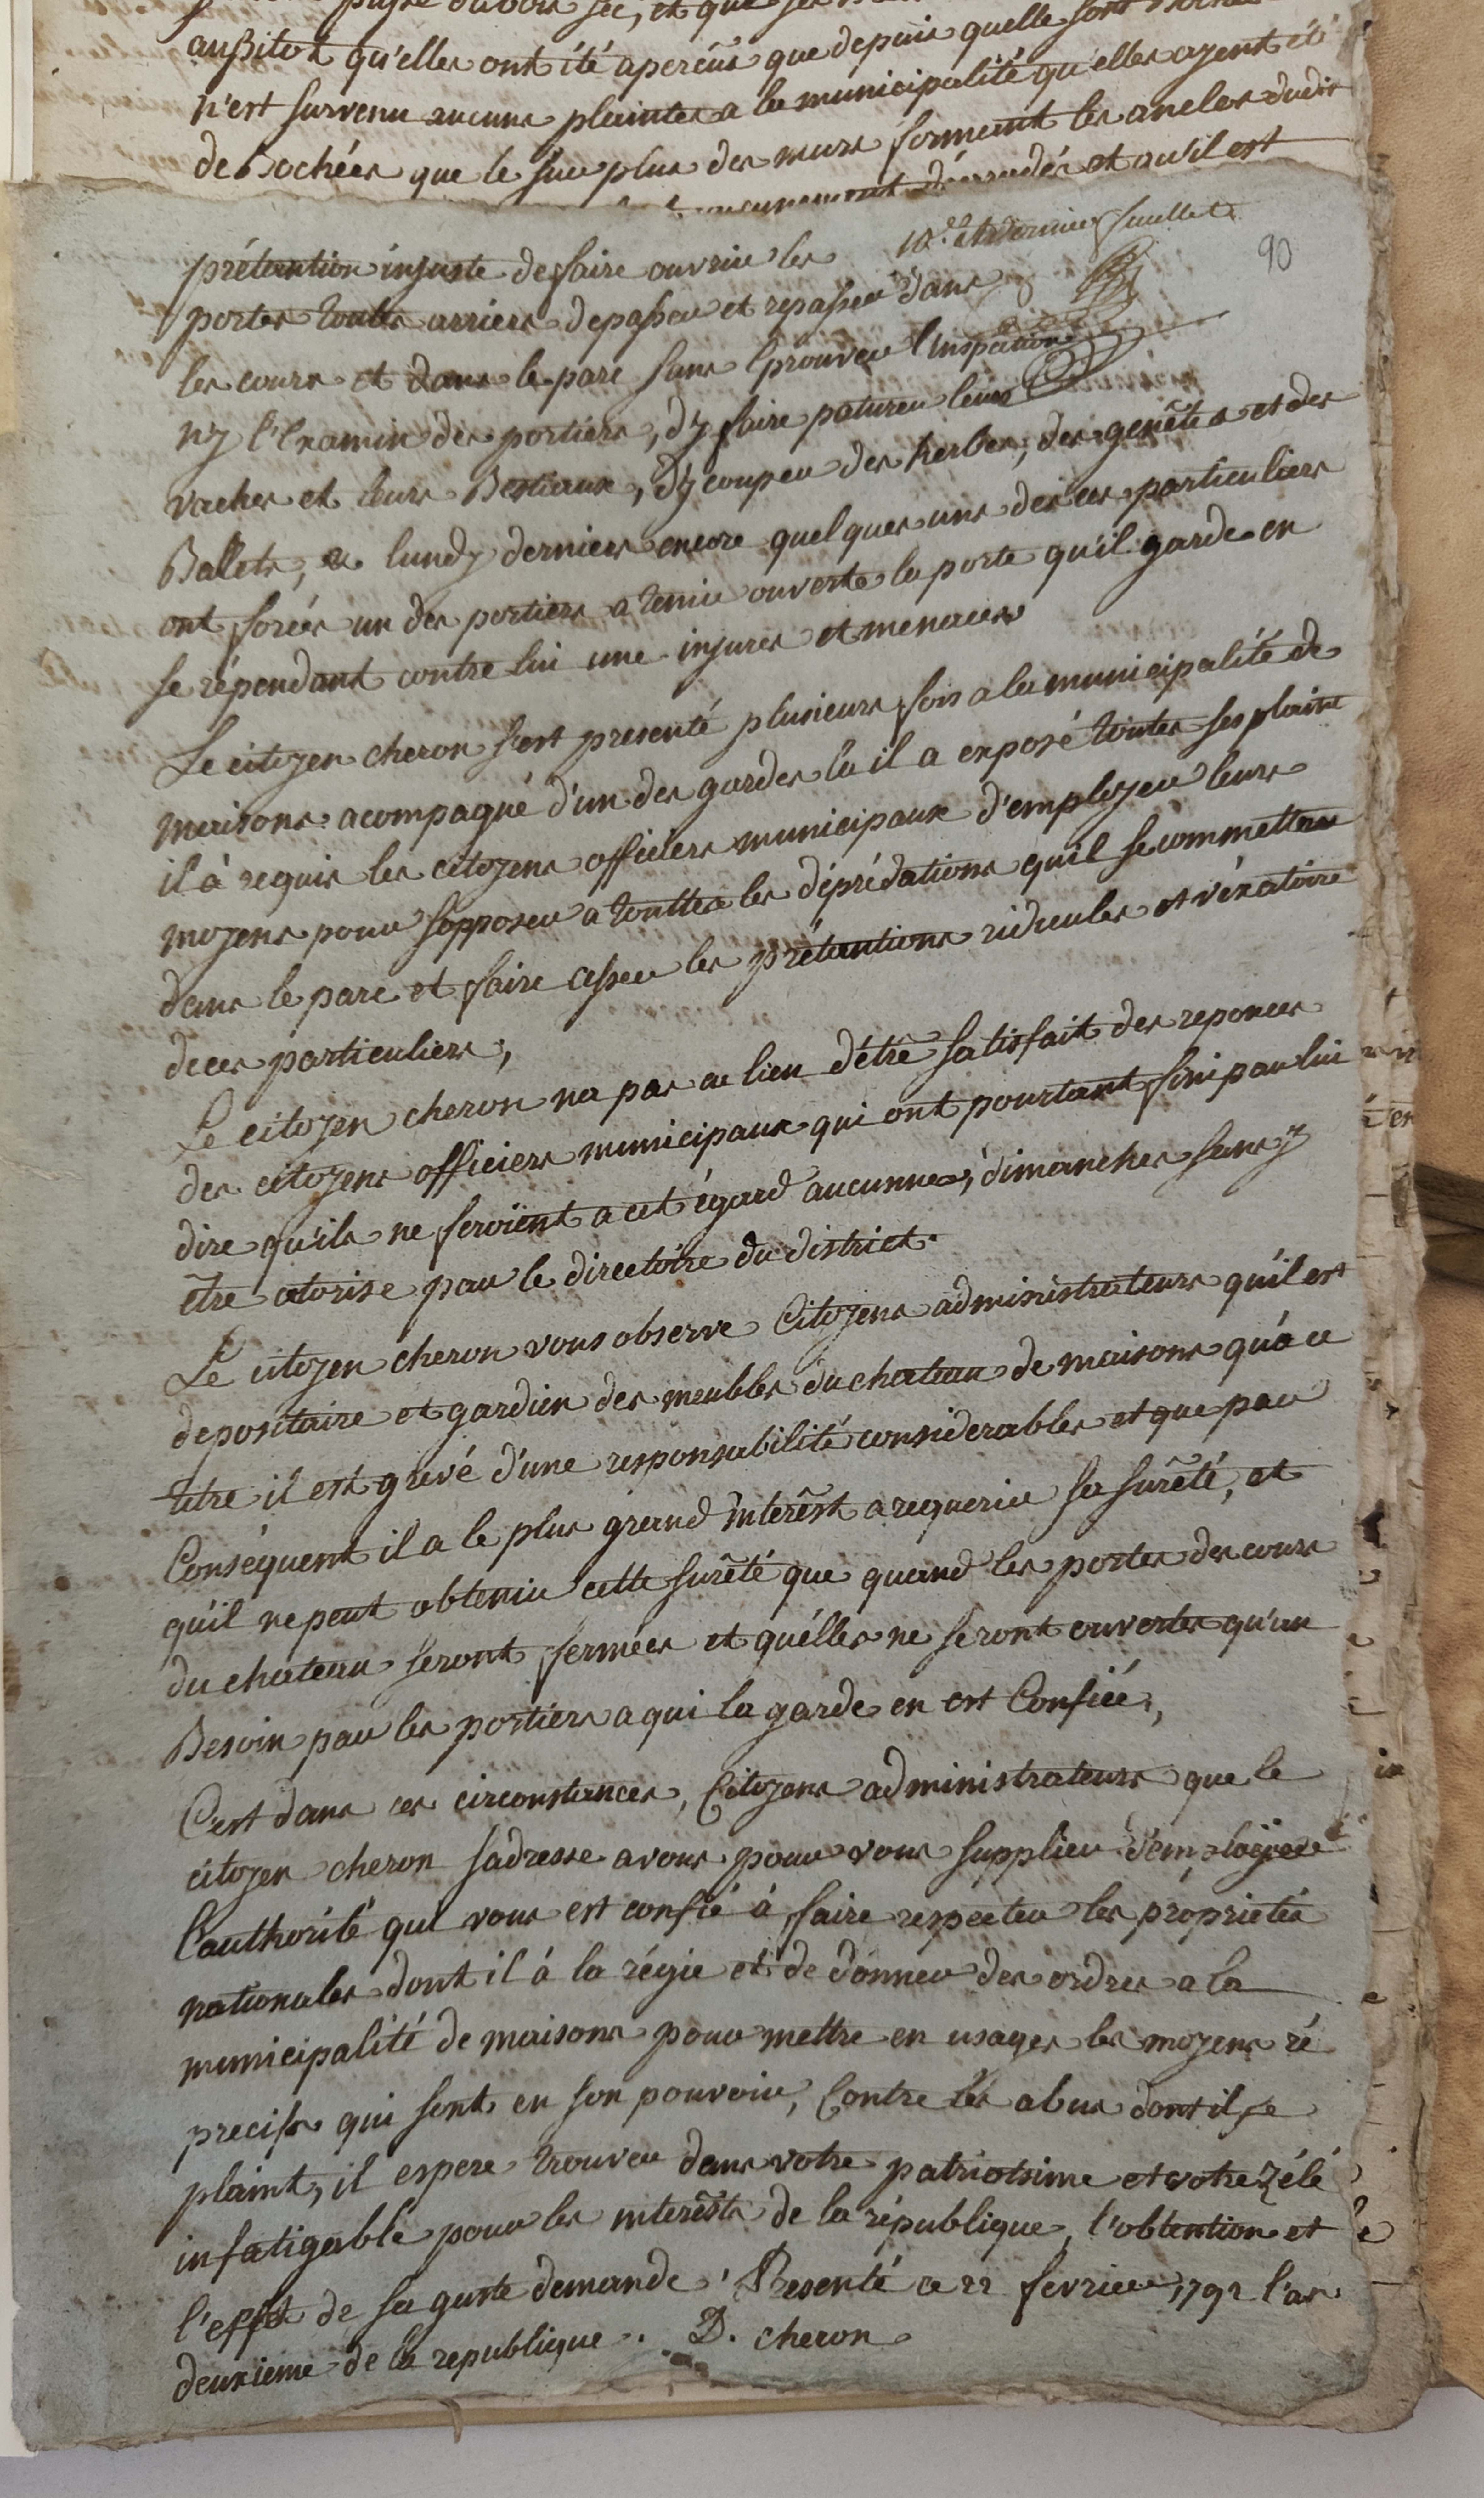 aussitot qu'elles ont été aperçûs que depuis quelle sont
n'est survenu aucuns plaintes a la municipalité qu'elles ayent été
debochées que le sur plus des murs formant les ancles dudit
aucunement dégradés et qu'il est
10.e et dernier feuillet
90
prétention injuste de faire ouvrir les
portes toutes arriere de passer et repasser dans
les cours et dans le parc sans éprouver l'inspection
ny l'examin des portiers, d'y faire paturer leurs
vaches et leurs Bestiaux, d'y couper des herbes, des genêts et des
Ballets, a lundy dernier encore quelques uns de ces particuliers
ont forcés un des portiers a tenir ouverte la porte qu'il garde en
se répendant contre lui une injures et menaces
Le citoyen cheron s'est presenté plusieurs fois a la municipalité de
maisons acompagné d'un des gardes la il a exposé toutes ses plainte
il à requis les citoyens officiers municipaux d'employer leurs
moyens pour s'opposer a touttes les déprédations qu'il se commettent
dans le parc et faire cesser les prétentions ridicules et véxatoire
de ces particuliers,
Le citoyen cheron na pas eu lieu d'être satisfait des reponces
des citoyens officiers municipaux qui ont pourtant fini par lui
dire qu'ils ne feroient a cet égard aucunnes, dimanches sans y
être autorise par le directoire du district.
Le citoyen cheron vous observe Citoyens administrateurs qu'il est
depositaire et gardien des meubles du chateau de maisons qu'a ce
titre il est grevé d'une responsabilité considerables et que par
Conséquent il a le plus grand intérêst a requerir sa sûrêté, et
qu'il ne peut obtenir cette surêté que quand les portes des cours
du chateau seront fermées et quélles ne seront ouvertes qu'au
Besoin par les portiers a qui la garde en est Confiée,
C'est dans ces circonstances, Citoyens administrateurs que le
citoyen cheron s'adresse a vous pour vous supplier d'employer
l'authorité qui vous est confié à faire respecter les propriétés
nationales dont il à la régie et de donner des ordres a la
municipalité de maisons pour mettre en usages les moyens ré
precifs qui sont en son pouvoir, Contre les abus dont il se
plaint, il espere trouver dans votre patriotsime et votre zélé
infatigable pour les interêsts de la république, l'obtention et
l'effet de sa guste demande. Presenté ce 22 fevrier 1792 l'an
deuxieme de la republique. D. cheron